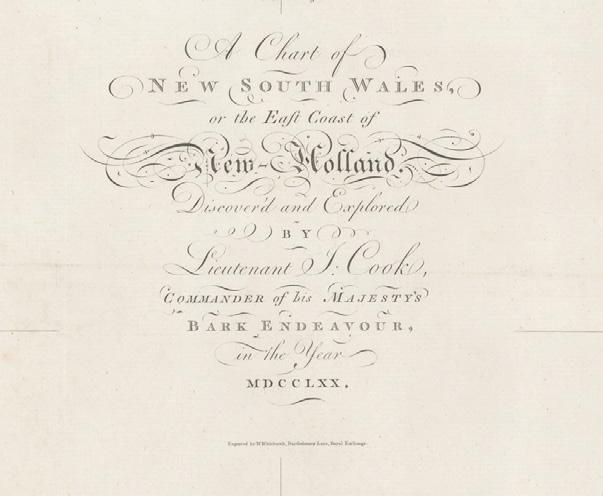 A Chart of
NEW SOUTH WALES,
or the Eaſt Coast of
New-Holland.
Discover'd and Explored
BY
Lieutenant J. Cook,
COMMANDER of his MAJESTY'S
BARK ENDEAVOUR,
in the Year
MDCCLXX.
Engraved by W. Whitchurch, Bartholomew Lane, Royal Exchange.